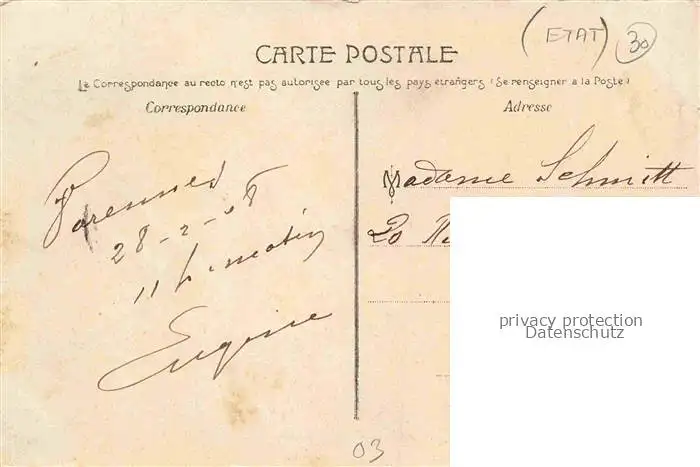 (ETAT) 30
CARTE POSTALE
La Correspondance au recto n'est pas autorisée par tous les pays étrangers (Se renseigner a la Poste)
Correspondance
Adresse
Varennes
28-2-08
11 h matin
Eugène
Madame Schmitt
20 R
privacy protection
Datenschutz
03